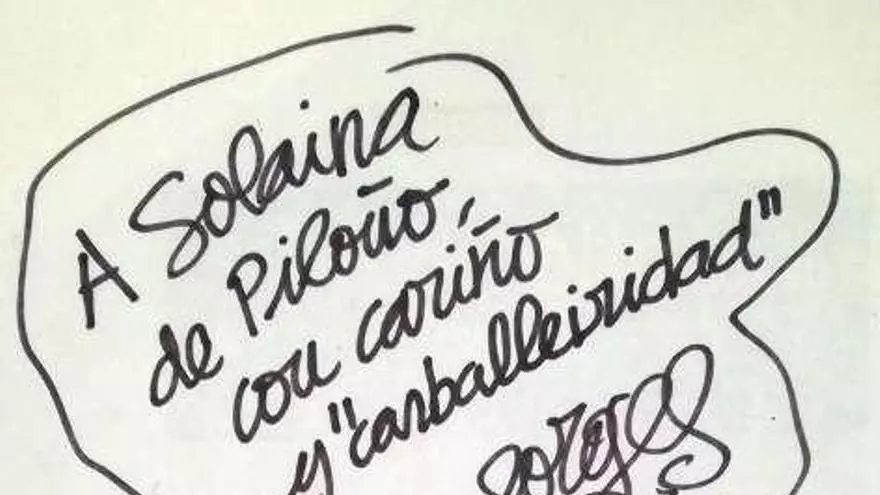 A Solaina
de Piloño,
con cariño
y "carballeiridad"